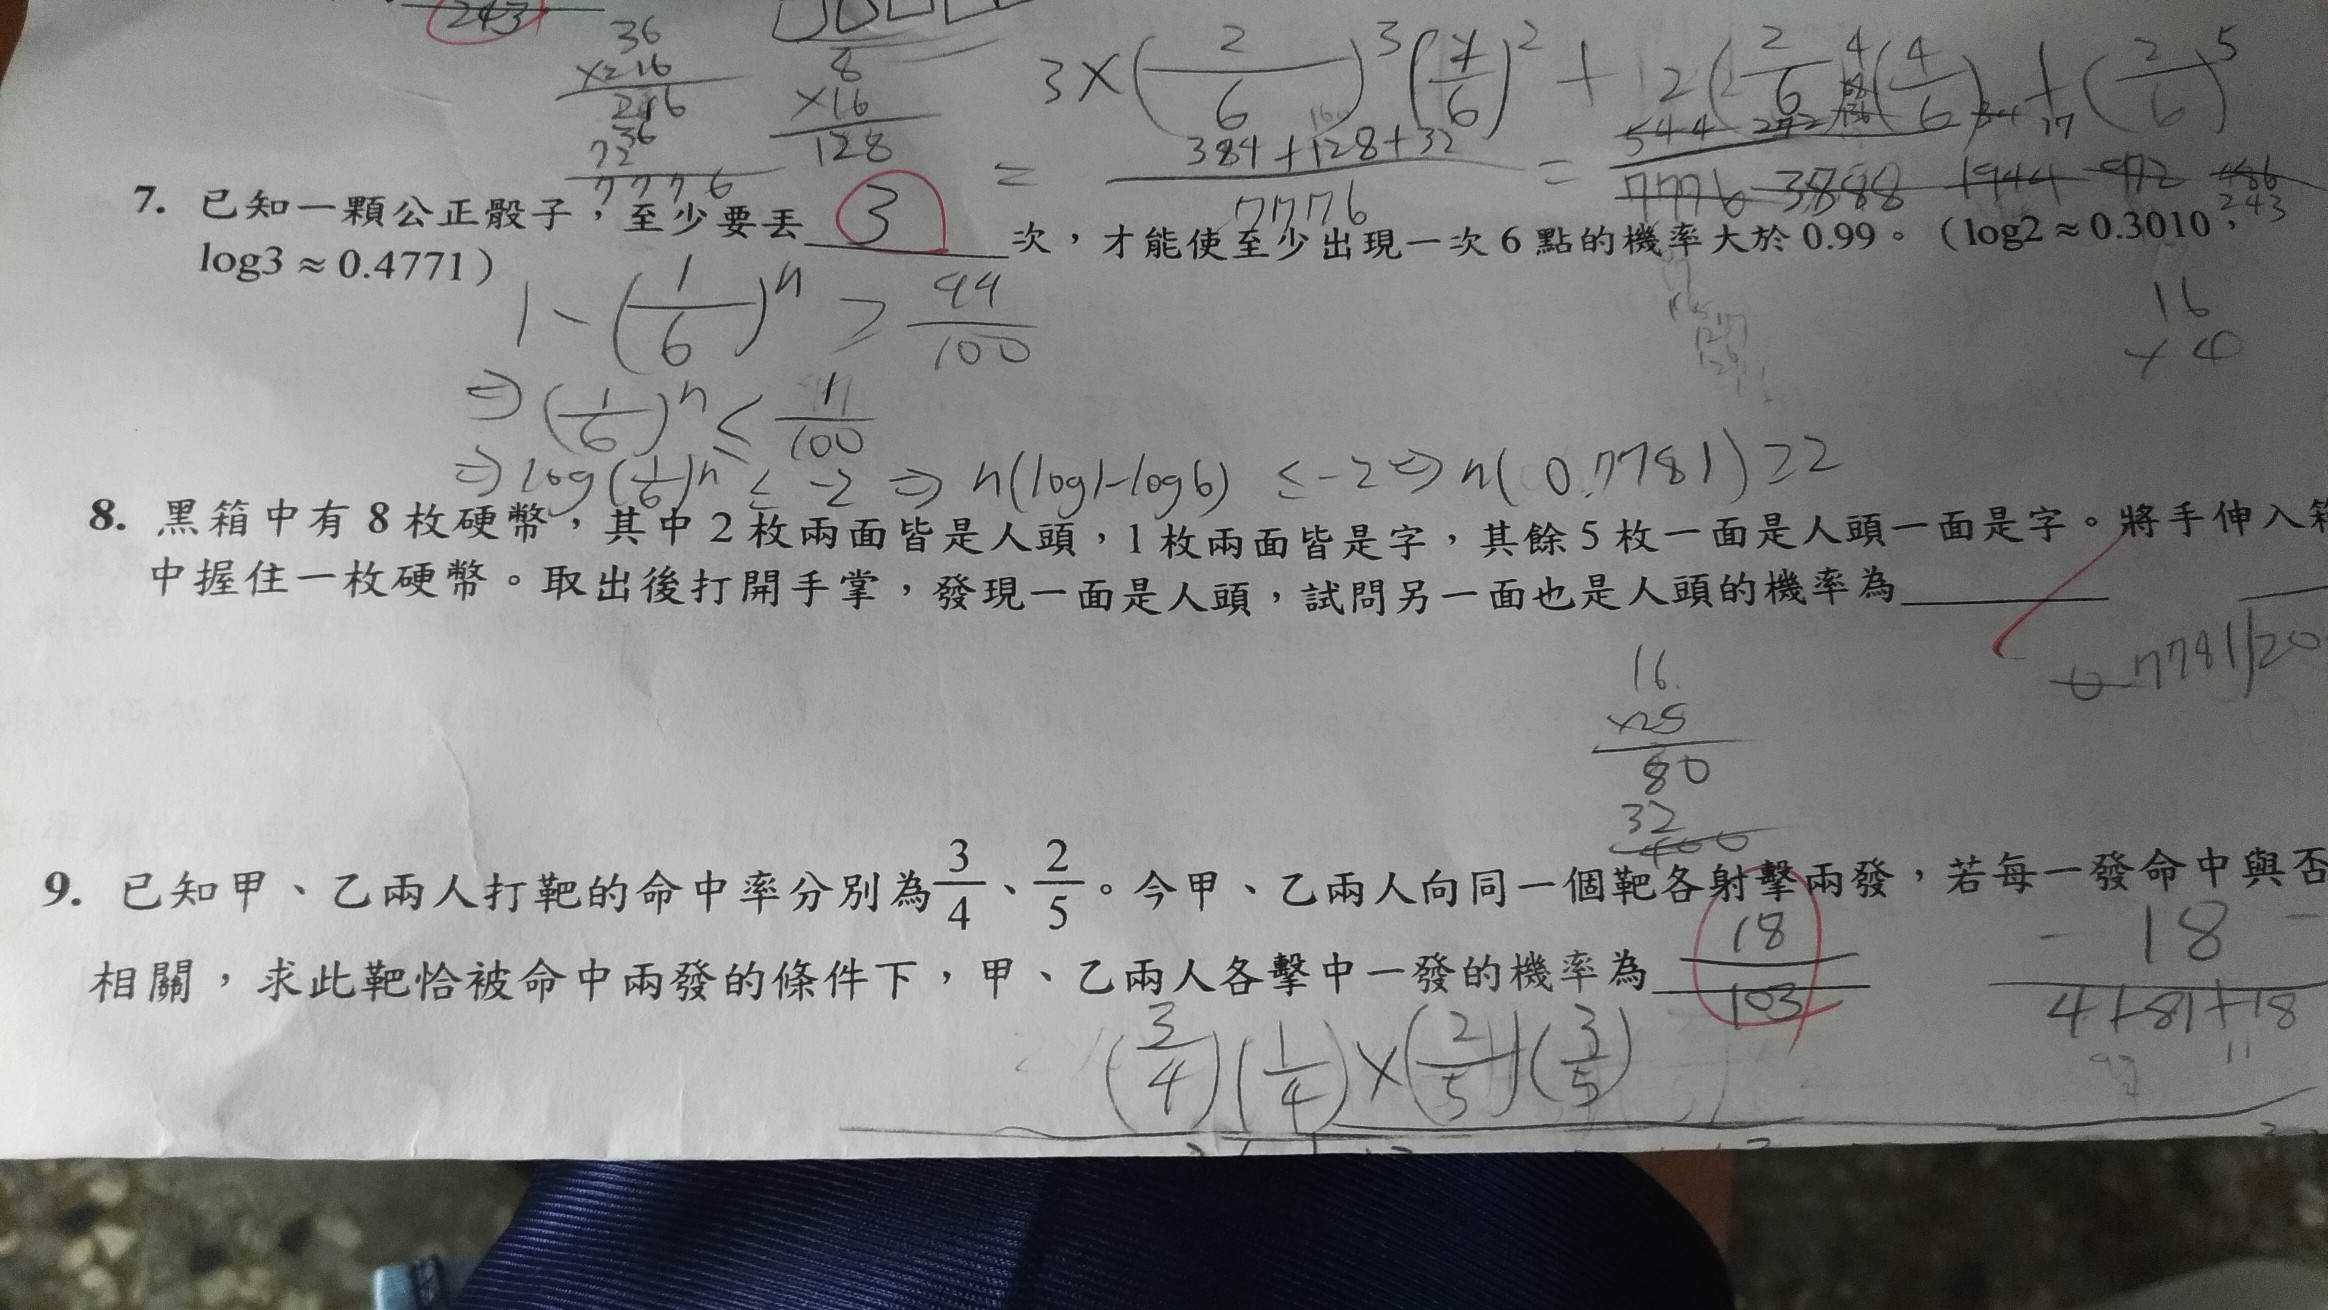 243
36
×216
216
36
72
7776
8
×16
128
3×(2/6)³(4/6)²+2(2/6)⁴(4/6)+(2/6)⁵
= 384+128+32/7776 = 544 272 136 34 17/7776 3888 1944 972 486 243
7. 已知一顆公正骰子，至少要丟 3 次，才能使至少出現一次 6 點的機率大於 0.99。（log2 ≈ 0.3010，
log3 ≈ 0.4771）
1-(1/6)ⁿ ≥ 99/100
⇒ (1/6)ⁿ ≤ 1/100
⇒ log(1/6)ⁿ ≤ -2 ⇒ n(log1-log6) ≤ -2 ⇒ n(0.7781) ≥ 2
16
×4
8. 黑箱中有 8 枚硬幣，其中 2 枚兩面皆是人頭，1 枚兩面皆是字，其餘 5 枚一面是人頭一面是字。將手伸入箱
中握住一枚硬幣。取出後打開手掌，發現一面是人頭，試問另一面也是人頭的機率為
0.7781 20
16
×25
80
32
400
9. 已知甲、乙兩人打靶的命中率分別為 3/4、2/5。今甲、乙兩人向同一個靶各射擊兩發，若每一發命中與否
相關，求此靶恰被命中兩發的條件下，甲、乙兩人各擊中一發的機率為 18/103
18
4+81+18
(3/4)(1/4)×(2/5)(3/5)